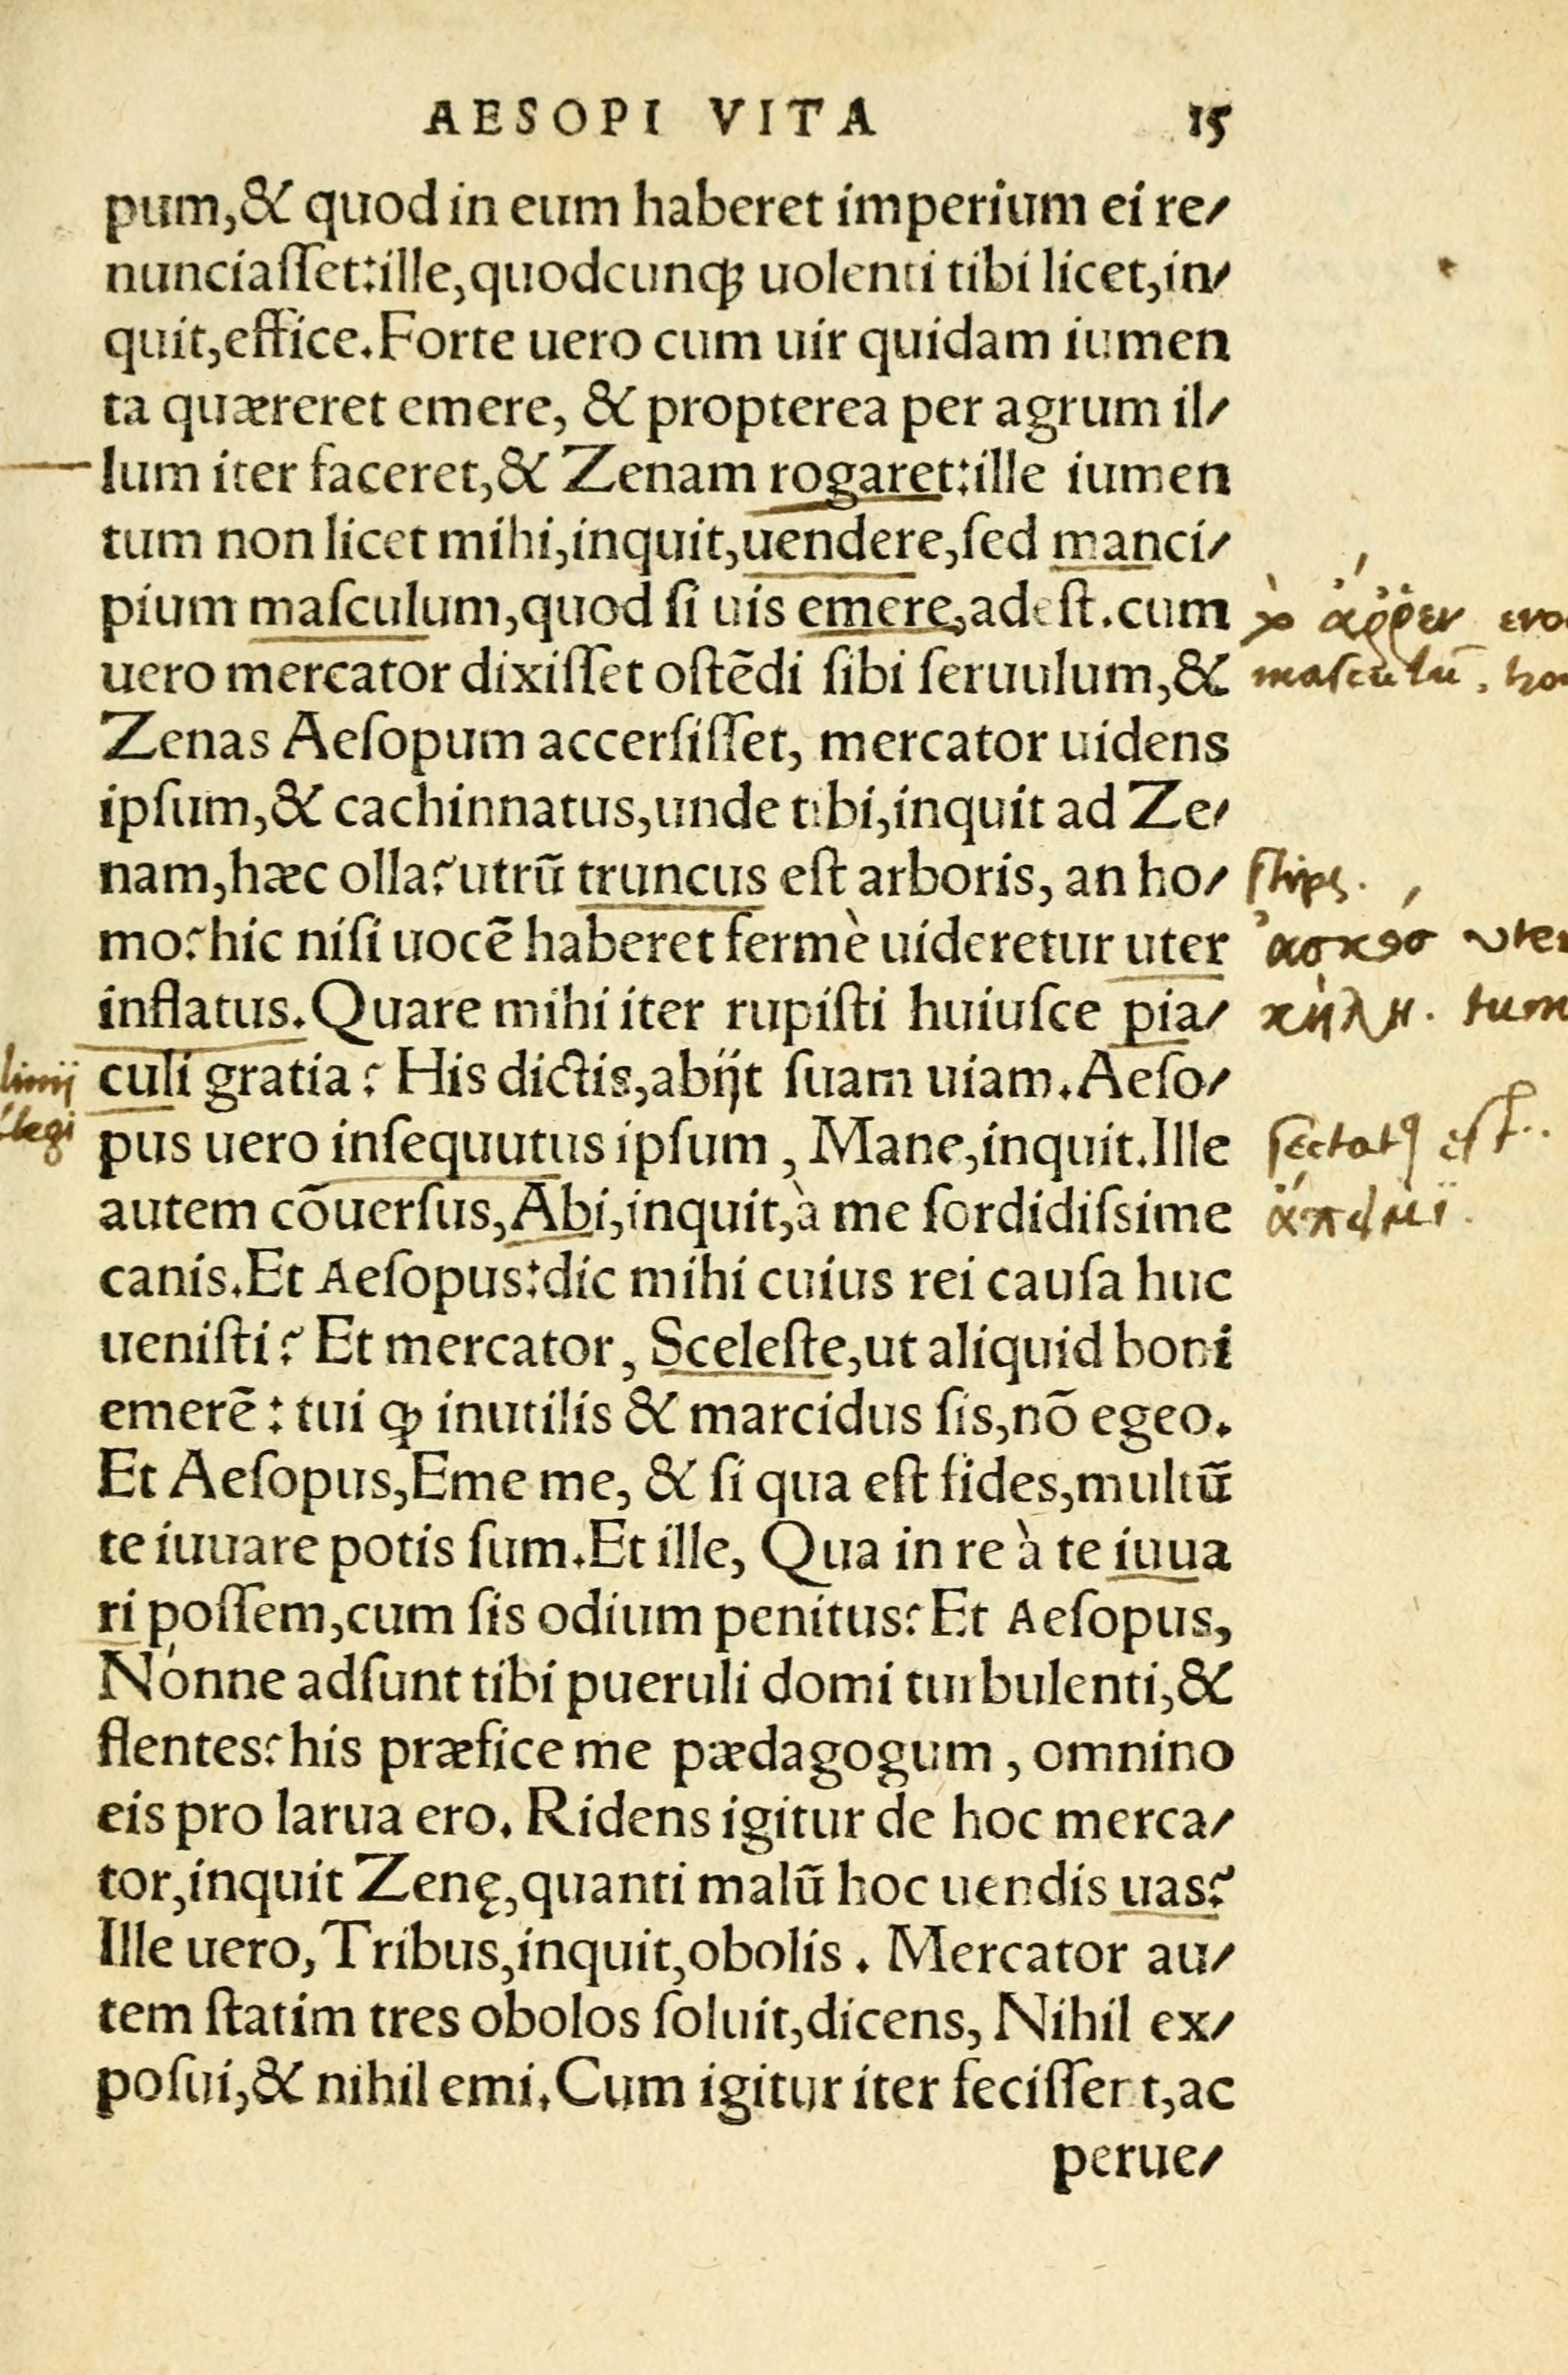 AESOPI VITA 15
pum,& quod in eum haberet imperium ei re/
nunciaſſet:ille,quodcunqꝫ uolenti tibi licet,in/
quit,effice.Forte uero cum uir quidam iumen
ta quæreret emere, & propterea per agrum il/
lum iter faceret,& Zenam rogaret:ille iumen
tum non licet mihi,inquit,uendere,ſed manci/
pium maſculum,quod ſi uis emere,adeſt.cum
ἄῤῥεν
uero mercator dixiſſet oſtēdi ſibi ſeruulum,&
maſculū.
Zenas Aeſopum accerſiſſet, mercator uidens
ipſum,& cachinnatus,unde tibi,inquit ad Ze/
nam,hæc olla?utrū truncus eſt arboris, an ho/
mo?hic niſi uocē haberet fermè uideretur uter
ἀσκός uter
inflatus.Quare mihi iter rupiſti huiuſce pia/
κήλη. tum
culi gratia? His dictis,abijt ſuam uiam.Aeſo/
pus uero inſequutus ipſum , Mane,inquit.Ille
ſectatꝰ eſt..
autem cōuerſus,Abi,inquit,à me ſordidiſsime
canis.Et Aeſopus:dic mihi cuius rei cauſa huc
ueniſti? Et mercator, Sceleſte,ut aliquid boni
emerē: tui ꝙ inutilis & marcidus ſis,nō egeo.
Et Aeſopus,Eme me, & ſi qua eſt fides,multū
te iuuare potis ſum.Et ille, Qua in re à te iuua
ri poſſem,cum ſis odium penitus? Et Aeſopus,
Nónne adſunt tibi pueruli domi turbulenti,&
flentes? his præfice me pædagogum , omnino
eis pro larua ero. Ridens igitur de hoc merca/
tor,inquit Zenę,quanti malū hoc uendis uas?
Ille uero, Tribus,inquit,obolis. Mercator au/
tem ſtatim tres obolos ſoluit,dicens, Nihil ex/
poſui,& nihil emi.Cum igitur iter feciſſent,ac
perue/